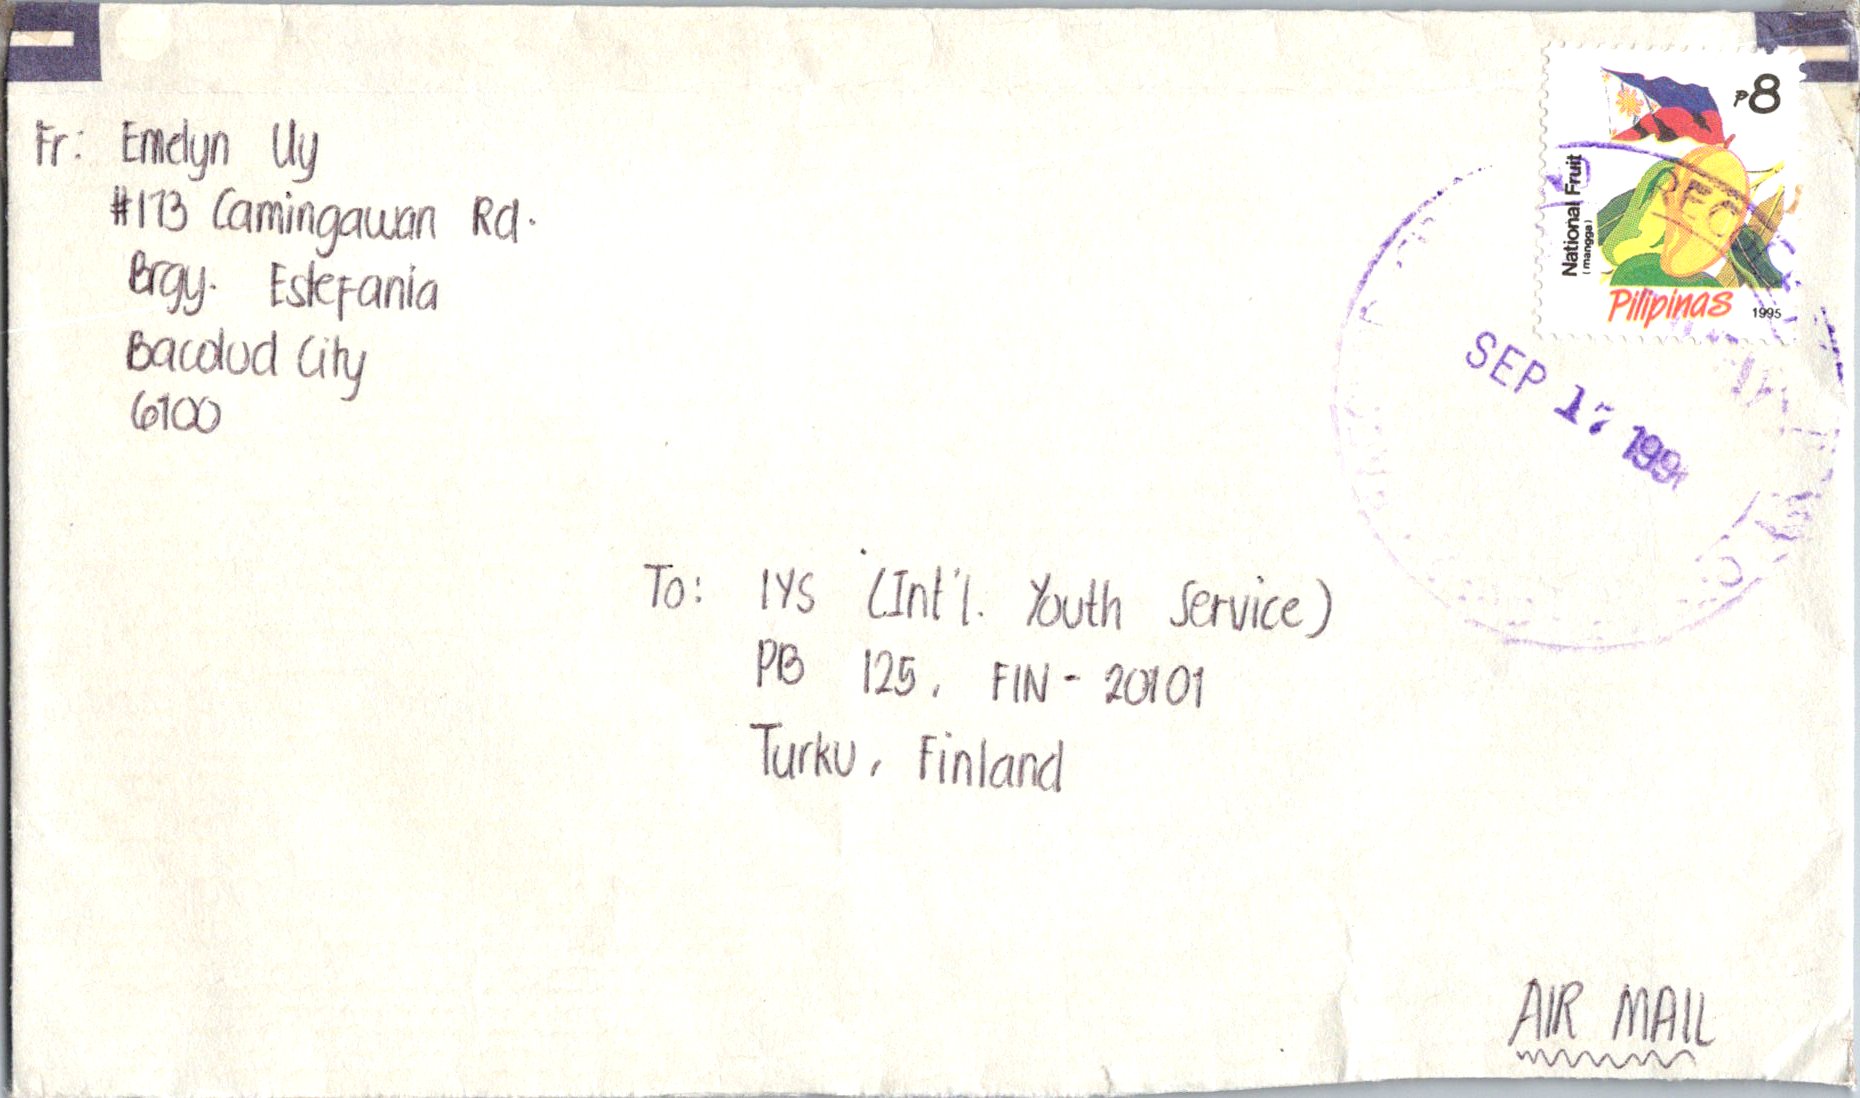 Fr: Emelyn Uy
#173 Camingawan Rd.
Brgy. Estefania
Bacolod City
6100
₱8
National Fruit
(mangga)
Pilipinas
1995
SEP 17 199
To: IYS (Int'l. Youth Service)
PB 125, FIN - 20101
Turku, Finland
AIR MAIL